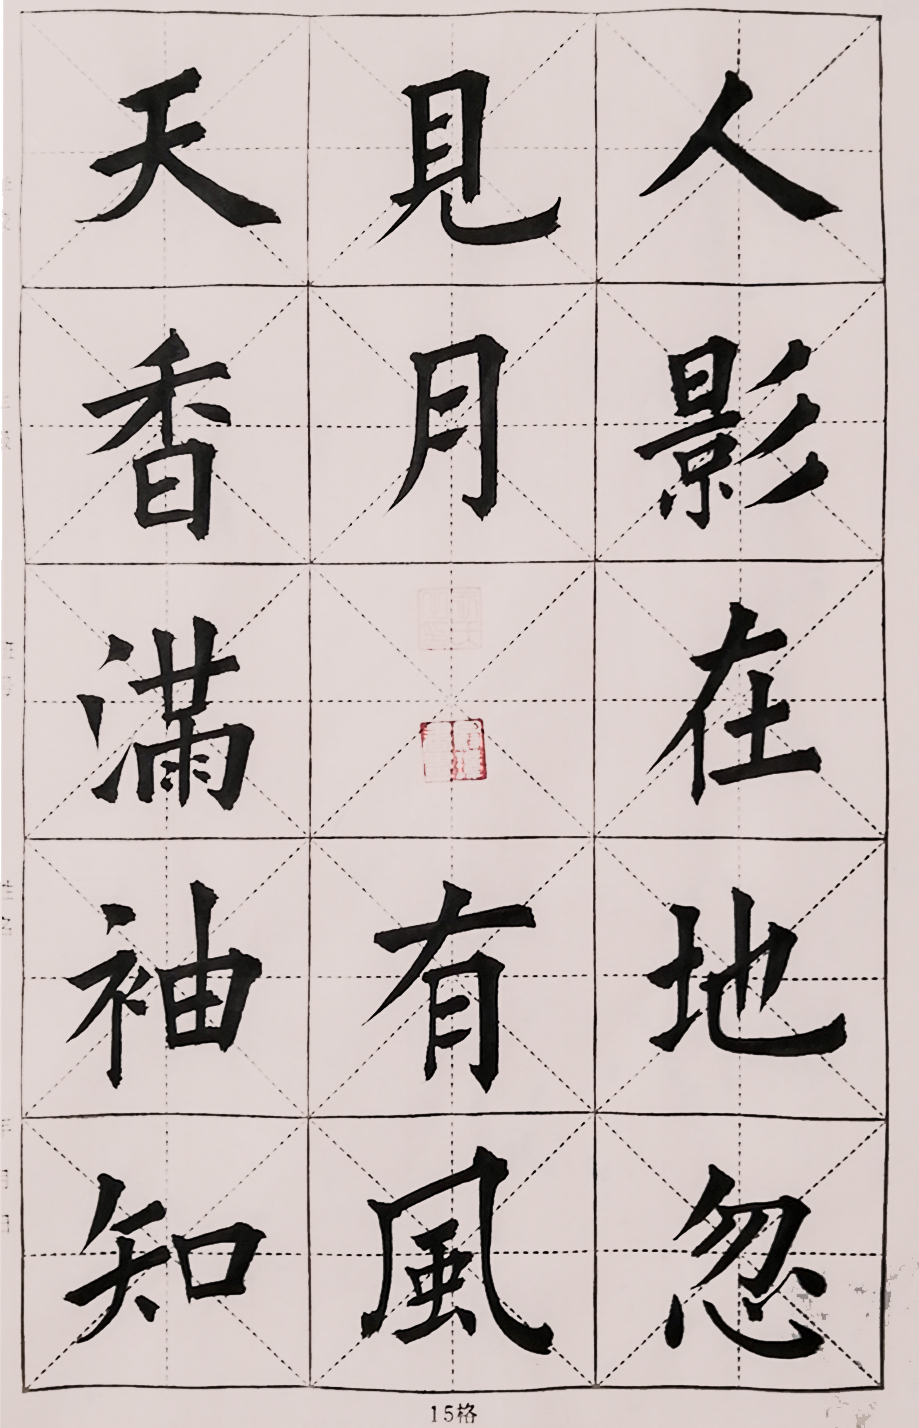 人影在地忽
見月
天香滿袖知
有風
15格